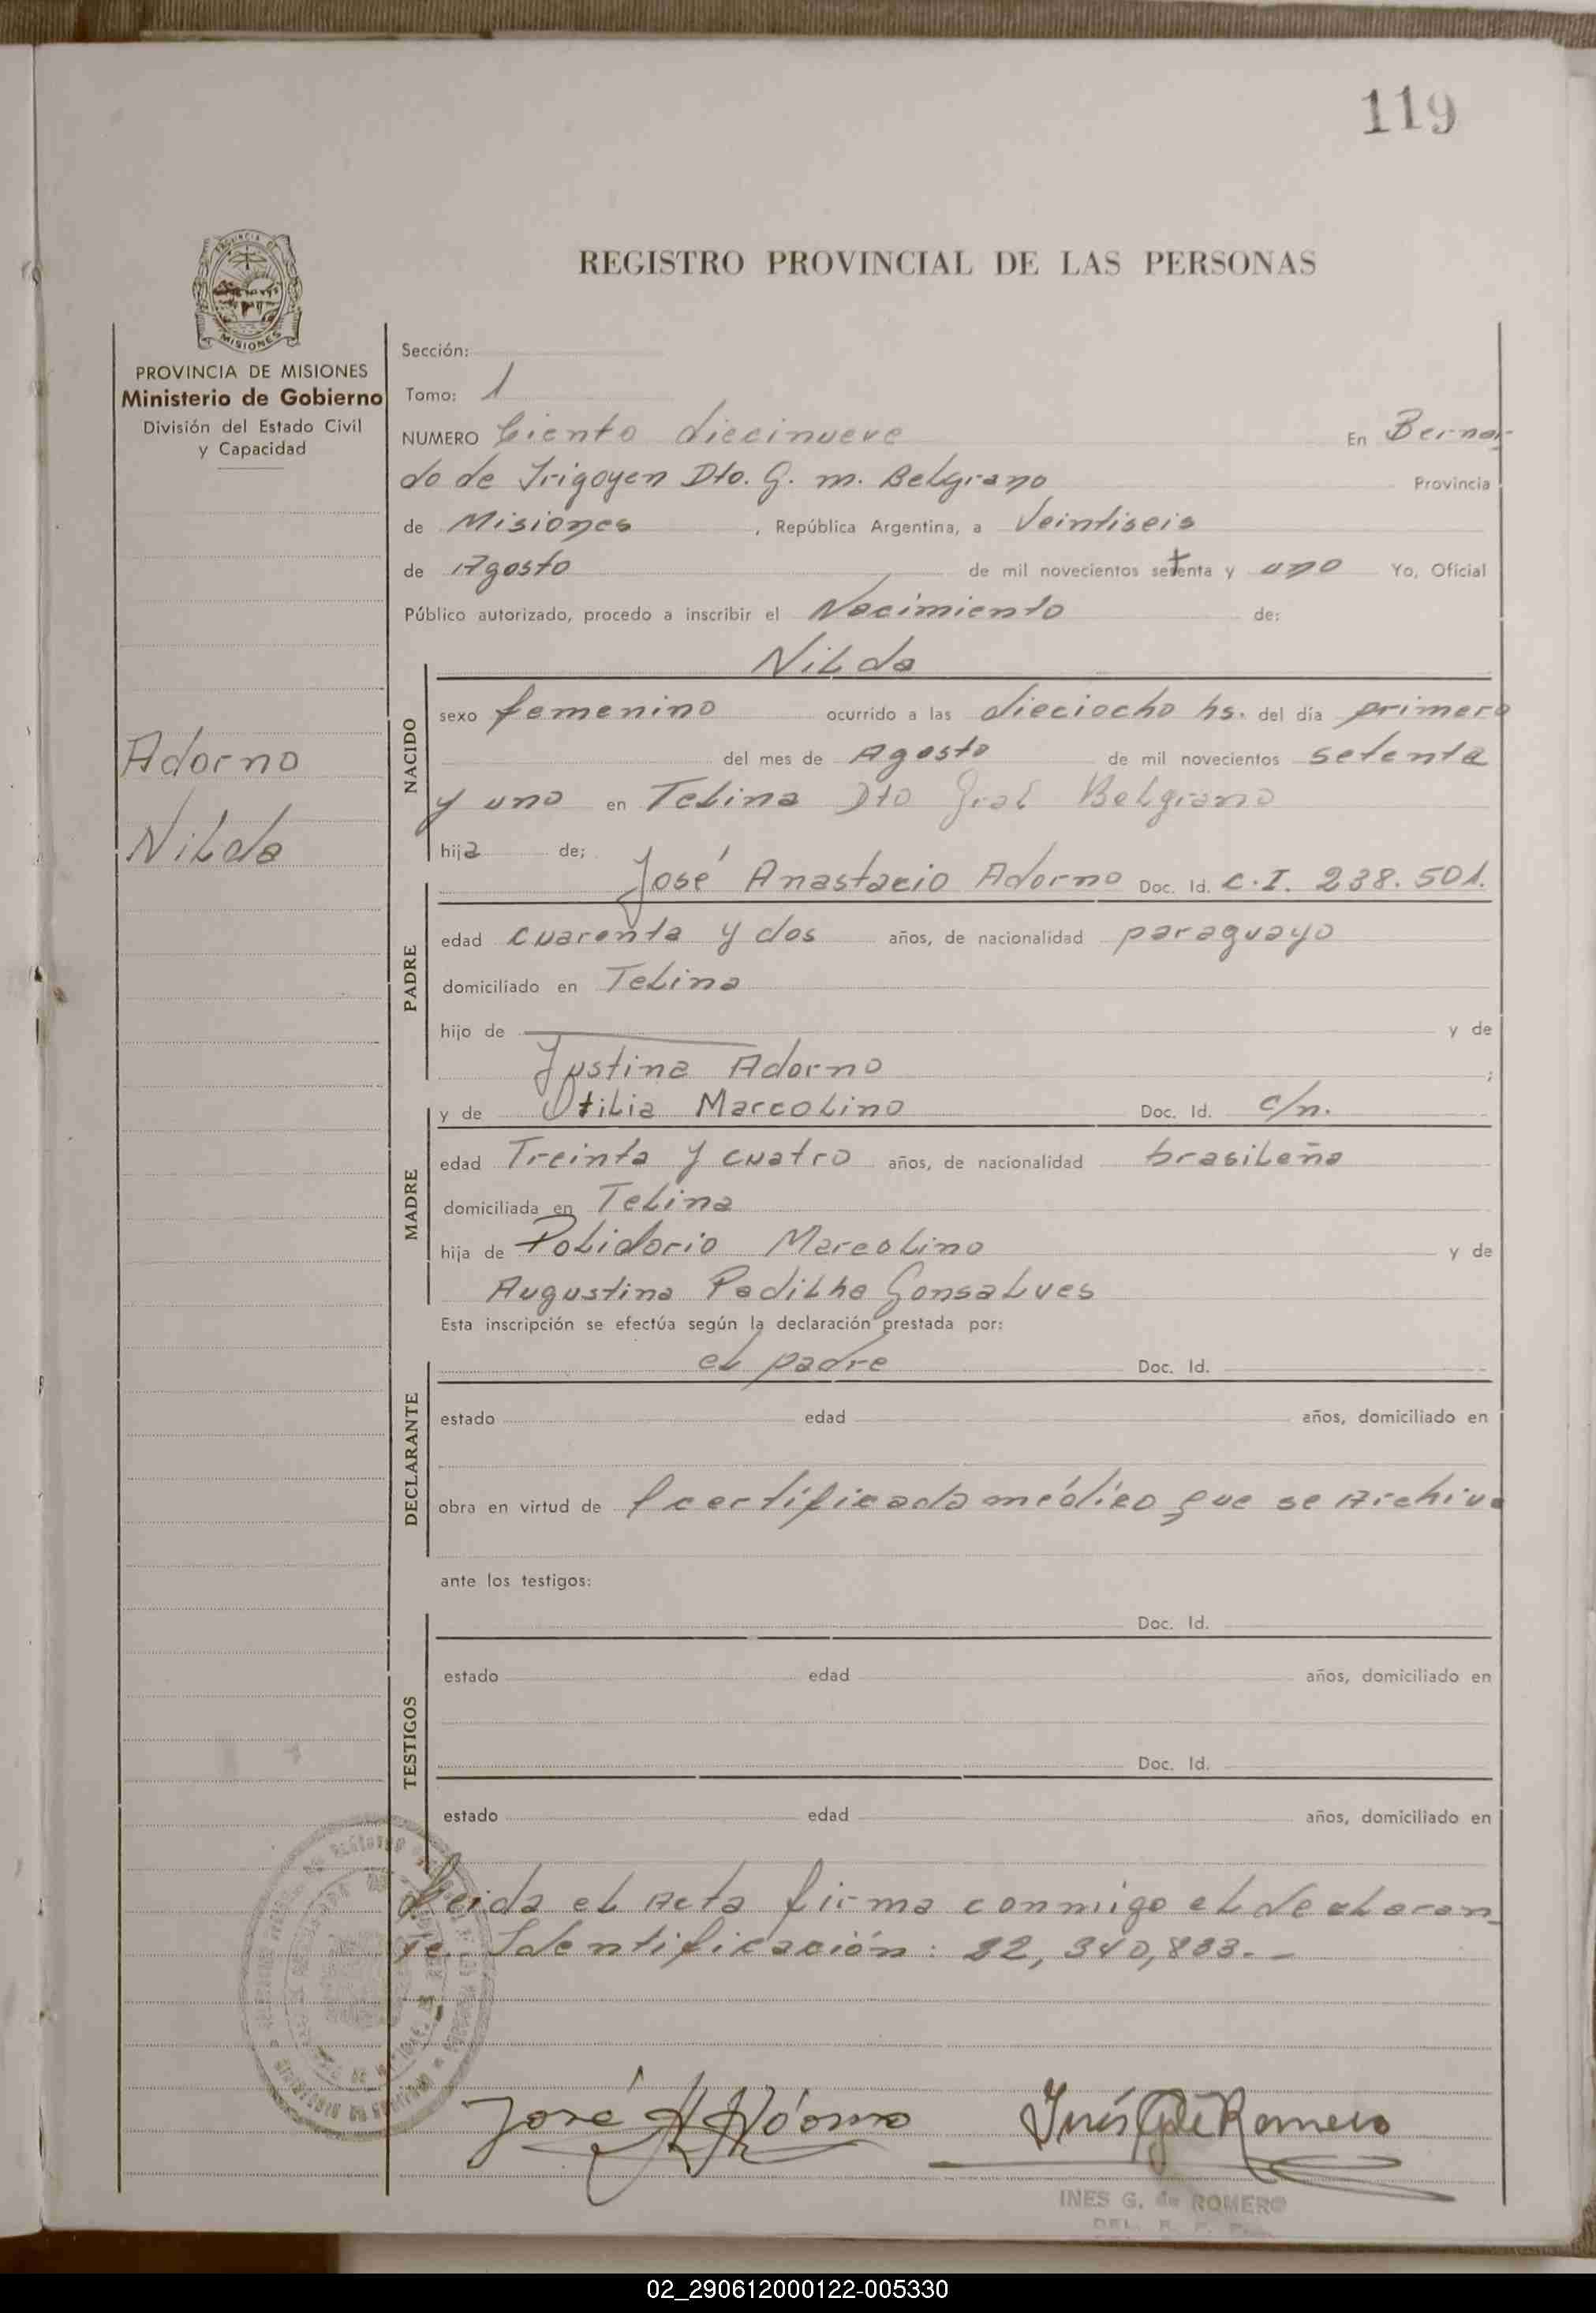 119
REGISTRO PROVINCIAL DE LAS PERSONAS
MISIONES
PROVINCIA DE MISIONES
Ministerio de Gobierno
División del Estado Civil
y Capacidad
Adorno
Nilda
Sección:
Tomo: 1
NUMERO Ciento diecinueve En Bernar-
do de Irigoyen Dto. G. m. Belgrano Provincia
de Misiones, República Argentina, a Veintiseis
de Agosto de mil novecientos setenta y uno Yo, Oficial
Público autorizado, procedo a inscribir el Nacimiento de:
Nilda
NACIDO
sexo femenino ocurrido a las dieciocho hs. del día primero
del mes de Agosto de mil novecientos setenta
y uno en Telina Dto Gral Belgrano
hija de;
José Anastacio Adorno Doc. Id. C.I. 238.501.
PADRE
edad cuarenta y dos años, de nacionalidad paraguayo
domiciliado en Telina
hijo de y de
Justina Adorno ;
y de Otilia Marcolino Doc. Id. c/n.
MADRE
edad Treinta y cuatro años, de nacionalidad brasileña
domiciliada en Telina
hija de Polidorio Marcolino y de
Augustina Padilha Gonsalves
Esta inscripción se efectúa según la declaración prestada por:
el padre Doc. Id.
DECLARANTE
estado edad años, domiciliado en
obra en virtud de certificado médico que se Archiva
ante los testigos:
Doc. Id.
TESTIGOS
estado edad años, domiciliado en
Doc. Id.
estado edad años, domiciliado en
Leida el Acta firma conmigo el declaran-
te. Identificación: 22,340,833.-
José A. Adorno Inés G. de Romero
INES G. de ROMERO
02_290612000122-005330